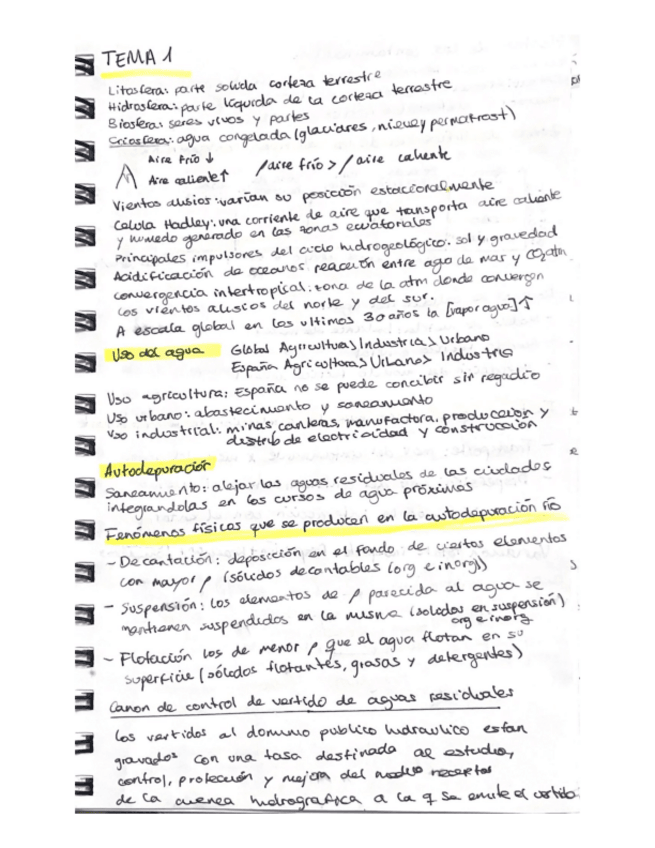 TEMA 1
Litosfera: parte solida corteza terrestre
Hidrosfera: parte líquida de la corteza terrestre
Biosfera: seres vivos y partes
Criosfera: agua congelada (glaciares, nieve y permafrost)
Aire frío ↓
Aire caliente ↑
ρ aire frío > ρ aire caliente
Vientos alisios: varían su posición estacionalmente
Celula Hadley: una corriente de aire que transporta aire caliente
y humedo generado en las zonas ecuatoriales
Principales impulsores del ciclo hidrogeológico: sol y gravedad
Acidificación de oceanos: reacción entre agua de mar y CO2 atm
convergencia intertropical: zona de la atm donde convergen
los vientos alisios del norte y del sur.
A escala global en los ultimos 30 años la [vapor agua] ↑
Uso del agua
Global Agricultura > Industrias > Urbano
España Agricultura > Urbano > Industria
Uso agricultura: España no se puede concibir sin regadío
Uso urbano: abastecimiento y saneamiento
Uso industrial: minas, canteras, manufactora, produccion y
distrib de electricidad y construcción
Autodepuración
Saneamiento: alejar las aguas residuales de las ciudades
integrandolas en los cursos de agua próximas
Fenómenos físicos que se producen en la autodepuración río
- Decantación: deposición en el fondo de ciertos elementos
con mayor ρ (sólidos decantables (org e inorg))
- Suspensión: los elementos de ρ parecida al agua se
mantienen suspendidos en la misma (solidos en suspensión)
org e inorg
- Flotación los de menor ρ que el agua flotan en su
superficie (sólidos flotantes, grasas y detergentes)
Canon de control de vertido de aguas residuales
Los vertidos al dominio publico hidraulico estan
gravados con una tasa destinada al estudio,
control, protección y mejora del medio receptor
de la cuenca hidrografica a la q se emite el vertido